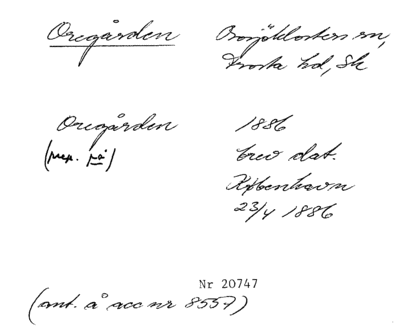 Oregården Bosjöklosters sn,
Frosta hd, Sk
Oregården 1886
(prep. på) brev dat.
Köbenhavn
23/4 1886
Nr 20747
(ant. å acc nr 8557)